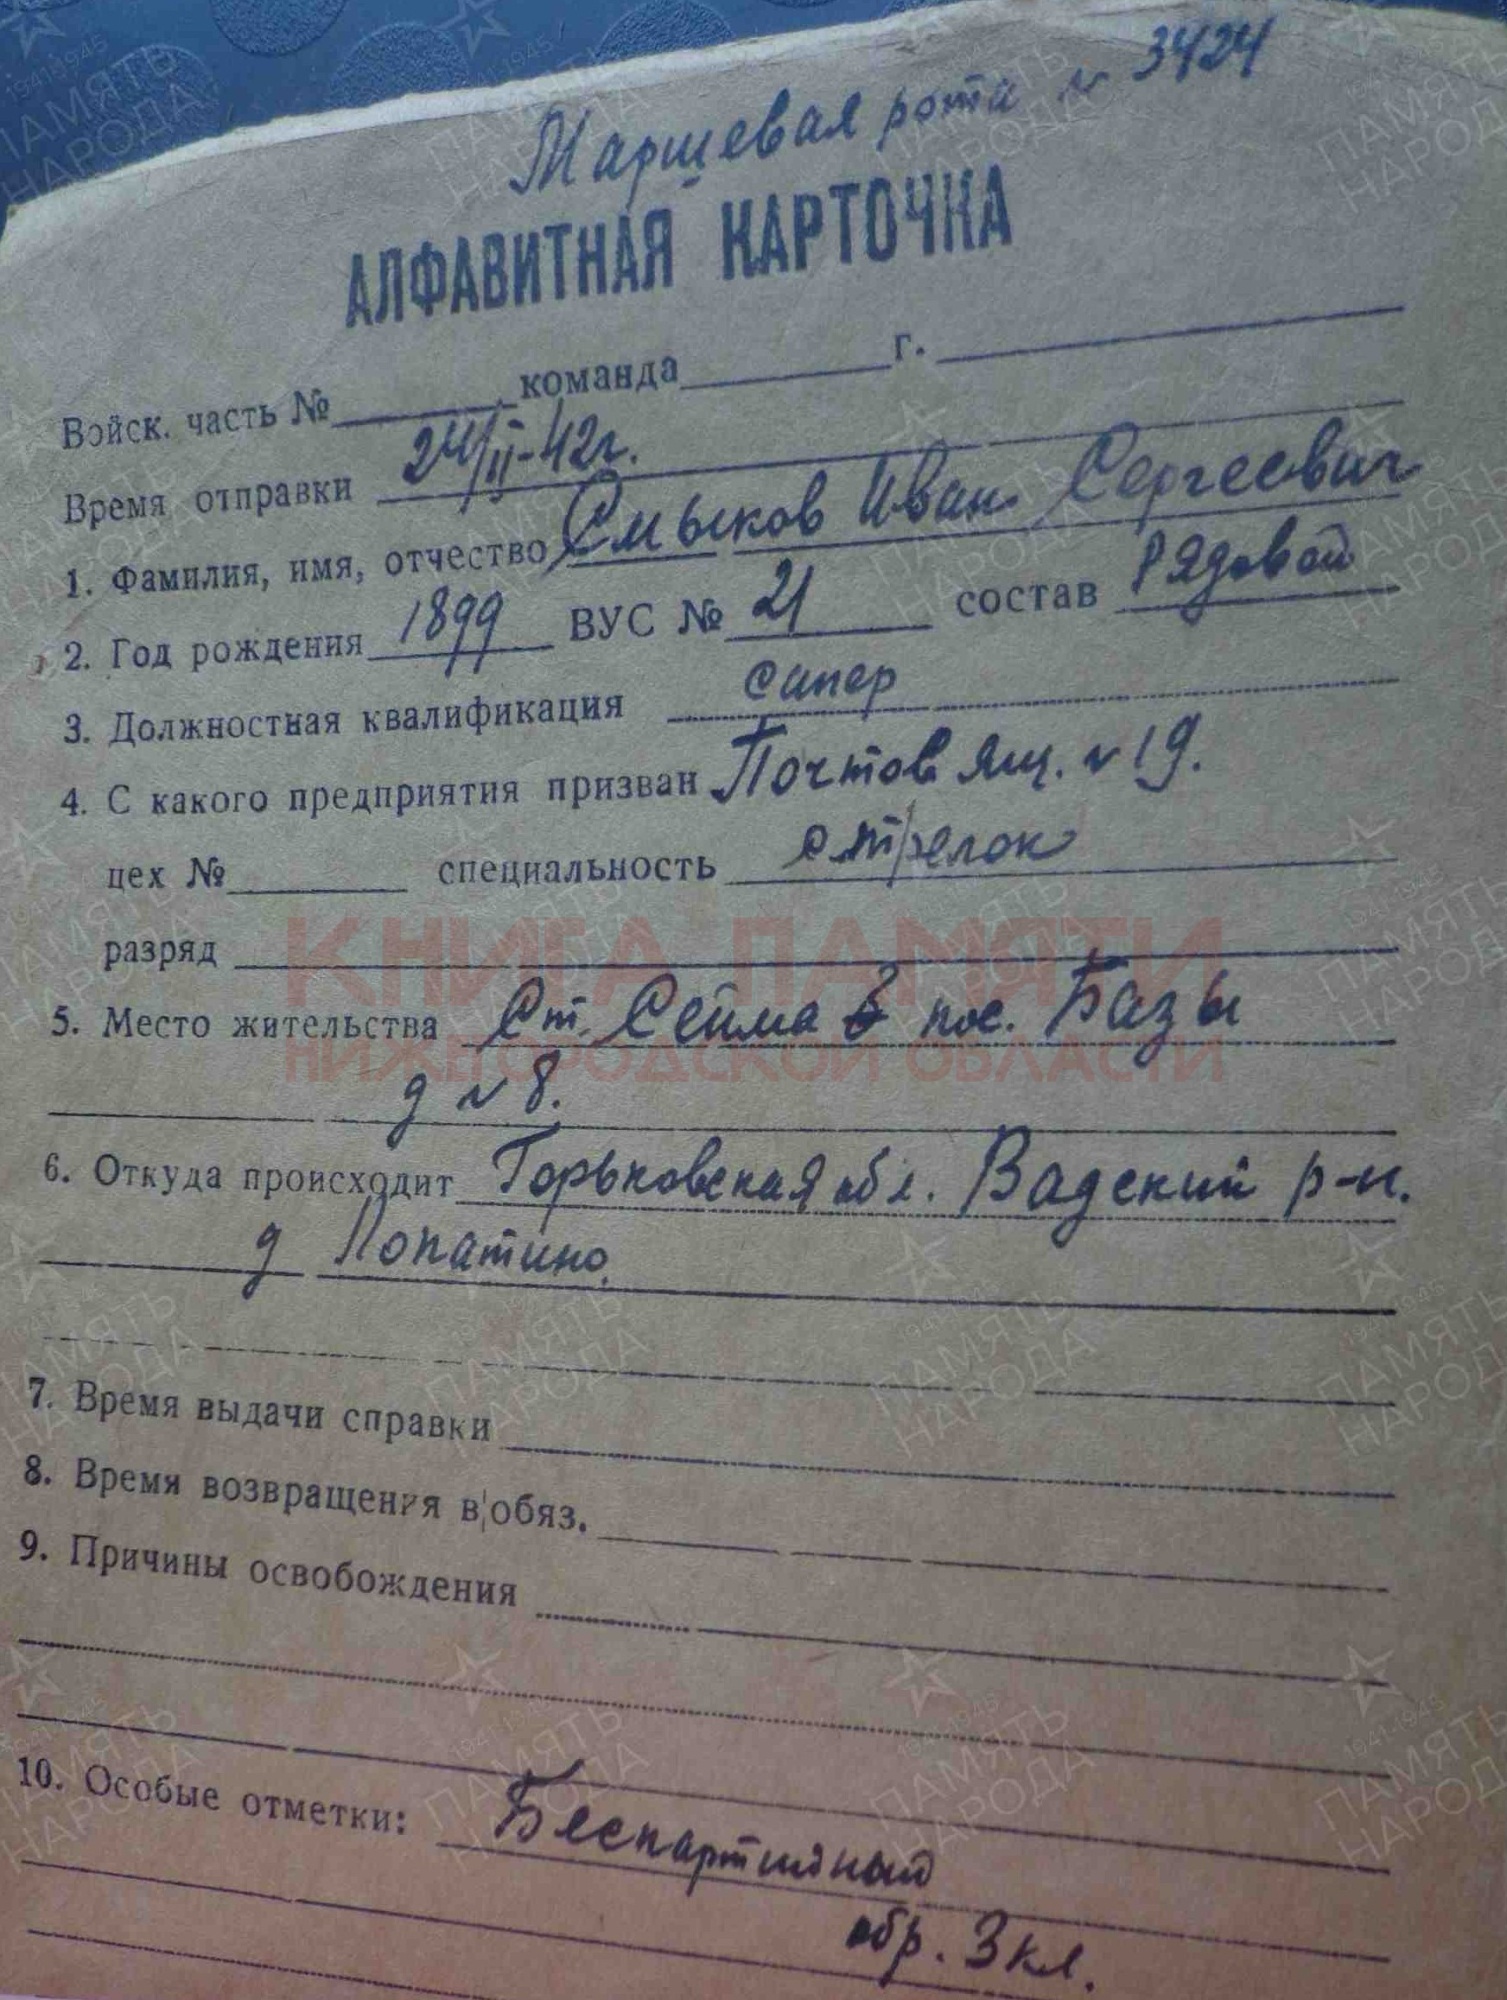 Маршевая рота № 3424
АЛФАВИТНАЯ КАРТОЧКА
Войск. часть № команда г.
Время отправки 24/II-42г.
1. Фамилия, имя, отчество Смыков Иван Сергеевич
2. Год рождения 1899 ВУС № 21 состав Рядовой
3. Должностная квалификация сапер
4. С какого предприятия призван Почтов ящ. № 19.
цех № специальность стрелок
разряд
КНИГА ПАМЯТИ
5. Место жительства Ст. Сейма пос. Базы
НИЖЕГОРОДСКОЙ ОБЛАСТИ
д № 8.
6. Откуда происходит Горьковская обл. Вадский р-н.
д Лопатино.
7. Время выдачи справки
8. Время возвращения в обяз.
9. Причины освобождения
10. Особые отметки: Беспартийный
обр. 3 кл.
ПАМЯТЬ НАРОДА
1941-1945